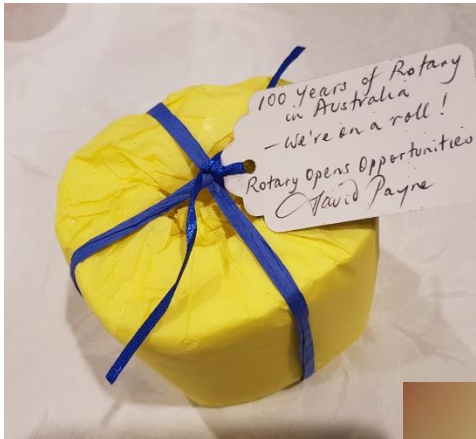 100 Years of Rotary
in Australia
- We're on a roll !
Rotary Opens Opportunities
David Payne